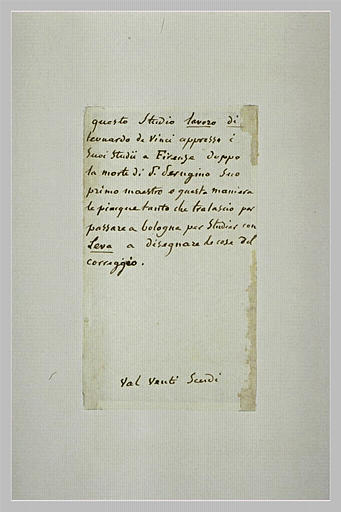 questo Studio lavoro di
Leonardo da Vinci appresso i
Suoi Studii a Firenze doppo
la morte di P. Perugino Suo
primo maestro e questa maniera
le piacque tanto che tralascio per
passare a bologna per Studiar con
Leva a disegnare le cose del
correggio.
Val Venti Scudi